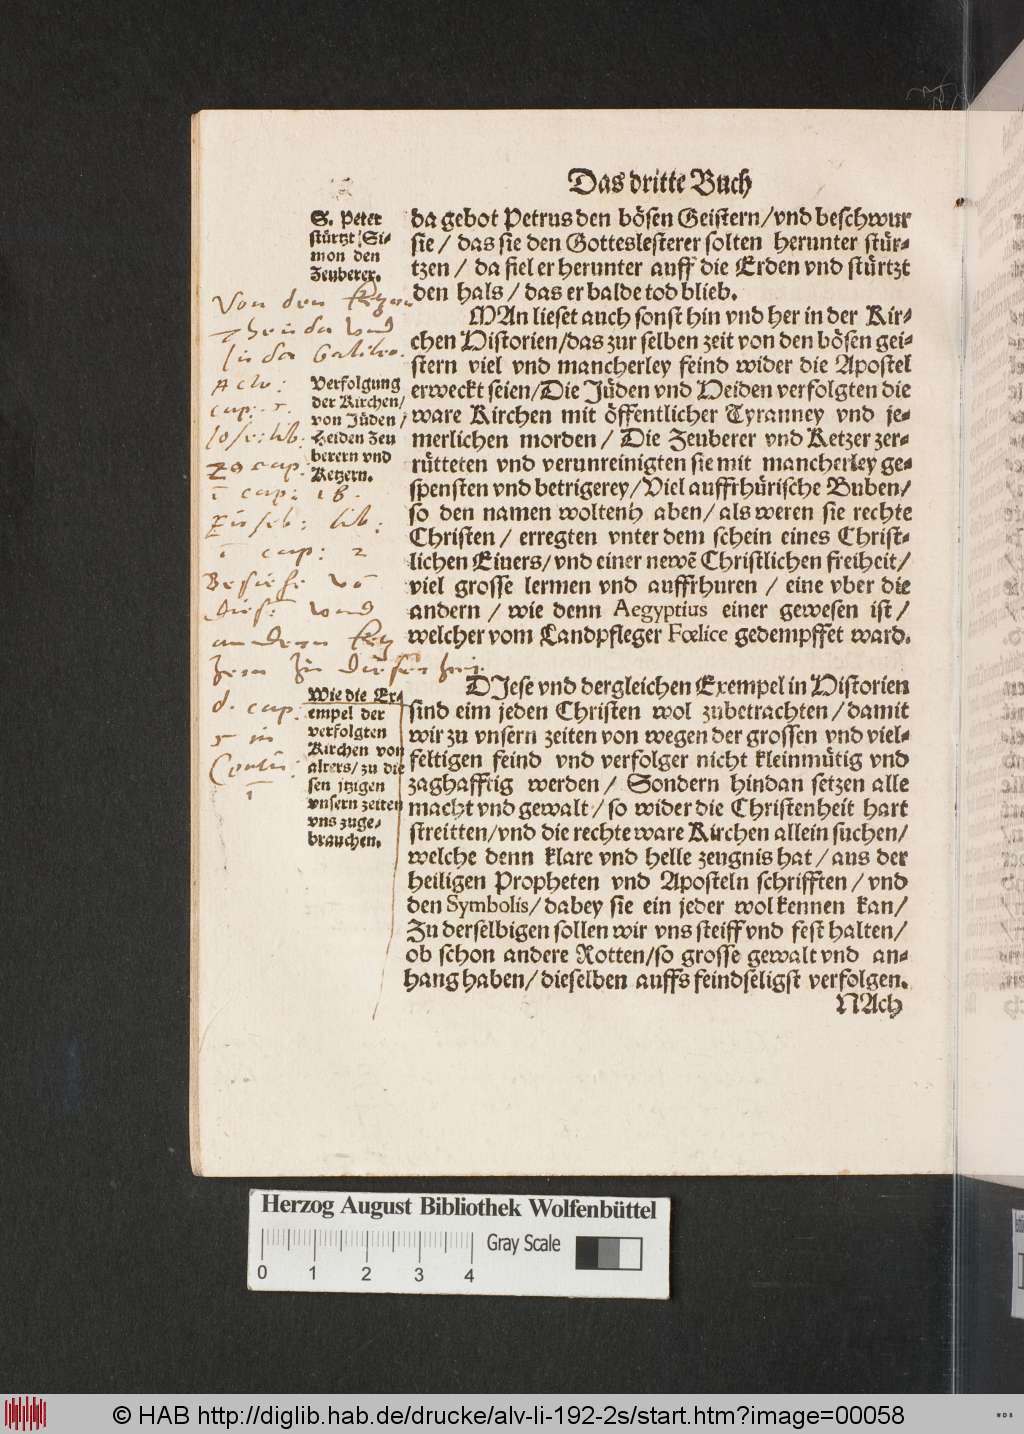 Das dritte Buch
da gebot Petrus den bösen Geistern/vnd beschwur
sie / das sie den Gotteslesterer solten herunter stür-
tzen / da fiel er herunter auff die Erden vnd stürtzt
den hals / das er balde tod blieb.
MAn lieset auch sonst hin vnd her in der Kir-
chen Historien/das zur selben zeit von den bösen gei-
stern viel vnd mancherley feind wider die Apostel
erweckt seien/Die Jüden vnd Heiden verfolgten die
ware Kirchen mit öffentlicher Tyranney vnd je-
merlichen morden / Die Zeuberer vnd Ketzer zer-
rütteten vnd verunreinigten sie mit mancherley ge-
spensten vnd betrigerey/Viel auffrhürische Buben/
so den namen woltenh aben/als weren sie rechte
Christen / erregten vnter dem schein eines Christ-
lichen Eiuers/vnd einer newẽ Christlichen freiheit/
viel grosse lermen vnd auffrhuren / eine vber die
andern / wie denn Aegyptius einer gewesen ist /
welcher vom Landpfleger Fœlice gedempffet ward.
DJese vnd dergleichen Exempel in Historien
sind eim jeden Christen wol zubetrachten / damit
wir zu vnsern zeiten von wegen der grossen vnd viel-
feltigen feind vnd verfolger nicht kleinmütig vnd
zaghafftig werden / Sondern hindan setzen alle
macht vnd gewalt / so wider die Christenheit hart
streitten/vnd die rechte ware Kirchen allein suchen/
welche denn klare vnd helle zeugnis hat / aus der
heiligen Propheten vnd Aposteln schrifften / vnd
den Symbolis/ dabey sie ein jeder wol kennen kan/
Zu derselbigen sollen wir vns steiff vnd fest halten/
ob schon andere Rotten/so grosse gewalt vnd an-
hang haben/ dieselben auffs feindseligst verfolgen.
NAch
S. Peter
stürtzt Si-
mon den
Zeuberer.
Von den
vnd
Galileo.
Acto:
cap: 5.
Jose: lib:
20 cap:
cap: 18.
Euseb: lib:
cap: 2
Besiehe vō
vnd
andern
zu dieser
d. cap:
5 in
Verfolgung
der Kirchen/
von Jüden /
Heiden Zeu
berern vnd
Ketzern.
Wie die Ex-
empel der
verfolgten
Kirchen von
alters/ zu die
sen jtzigen
vnsern zeiten
vns zuge-
brauchen.
Herzog August Bibliothek Wolfenbüttel
Gray Scale
0 1 2 3 4
© HAB http://diglib.hab.de/drucke/alv-li-192-2s/start.htm?image=00058